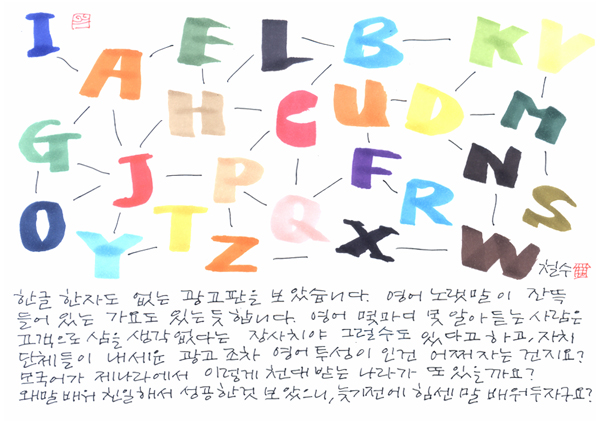 I A E L B K V
G H C U D M
J P F N
O Y T Z Q X R W S
철수
한글 한자도 없는 광고판을 보았습니다. 영어 노랫말이 잔뜩
들어 있는 가요도 있는듯 합니다. 영어 몇마디 못 알아듣는 사람은
고객으로 삼을 생각 없다는 장사치야 그럴수도 있다고 하고, 자치
단체들이 내세운 광고 조차 영어 투성이 인건 어쩌자는 건지요?
모국어가 제나라에서 이렇게 천대 받는 나라가 또 있을까요?
왜말 배워 친일해서 성공한것 보았으니, 늦기전에 힘센 말 배워두자구요?